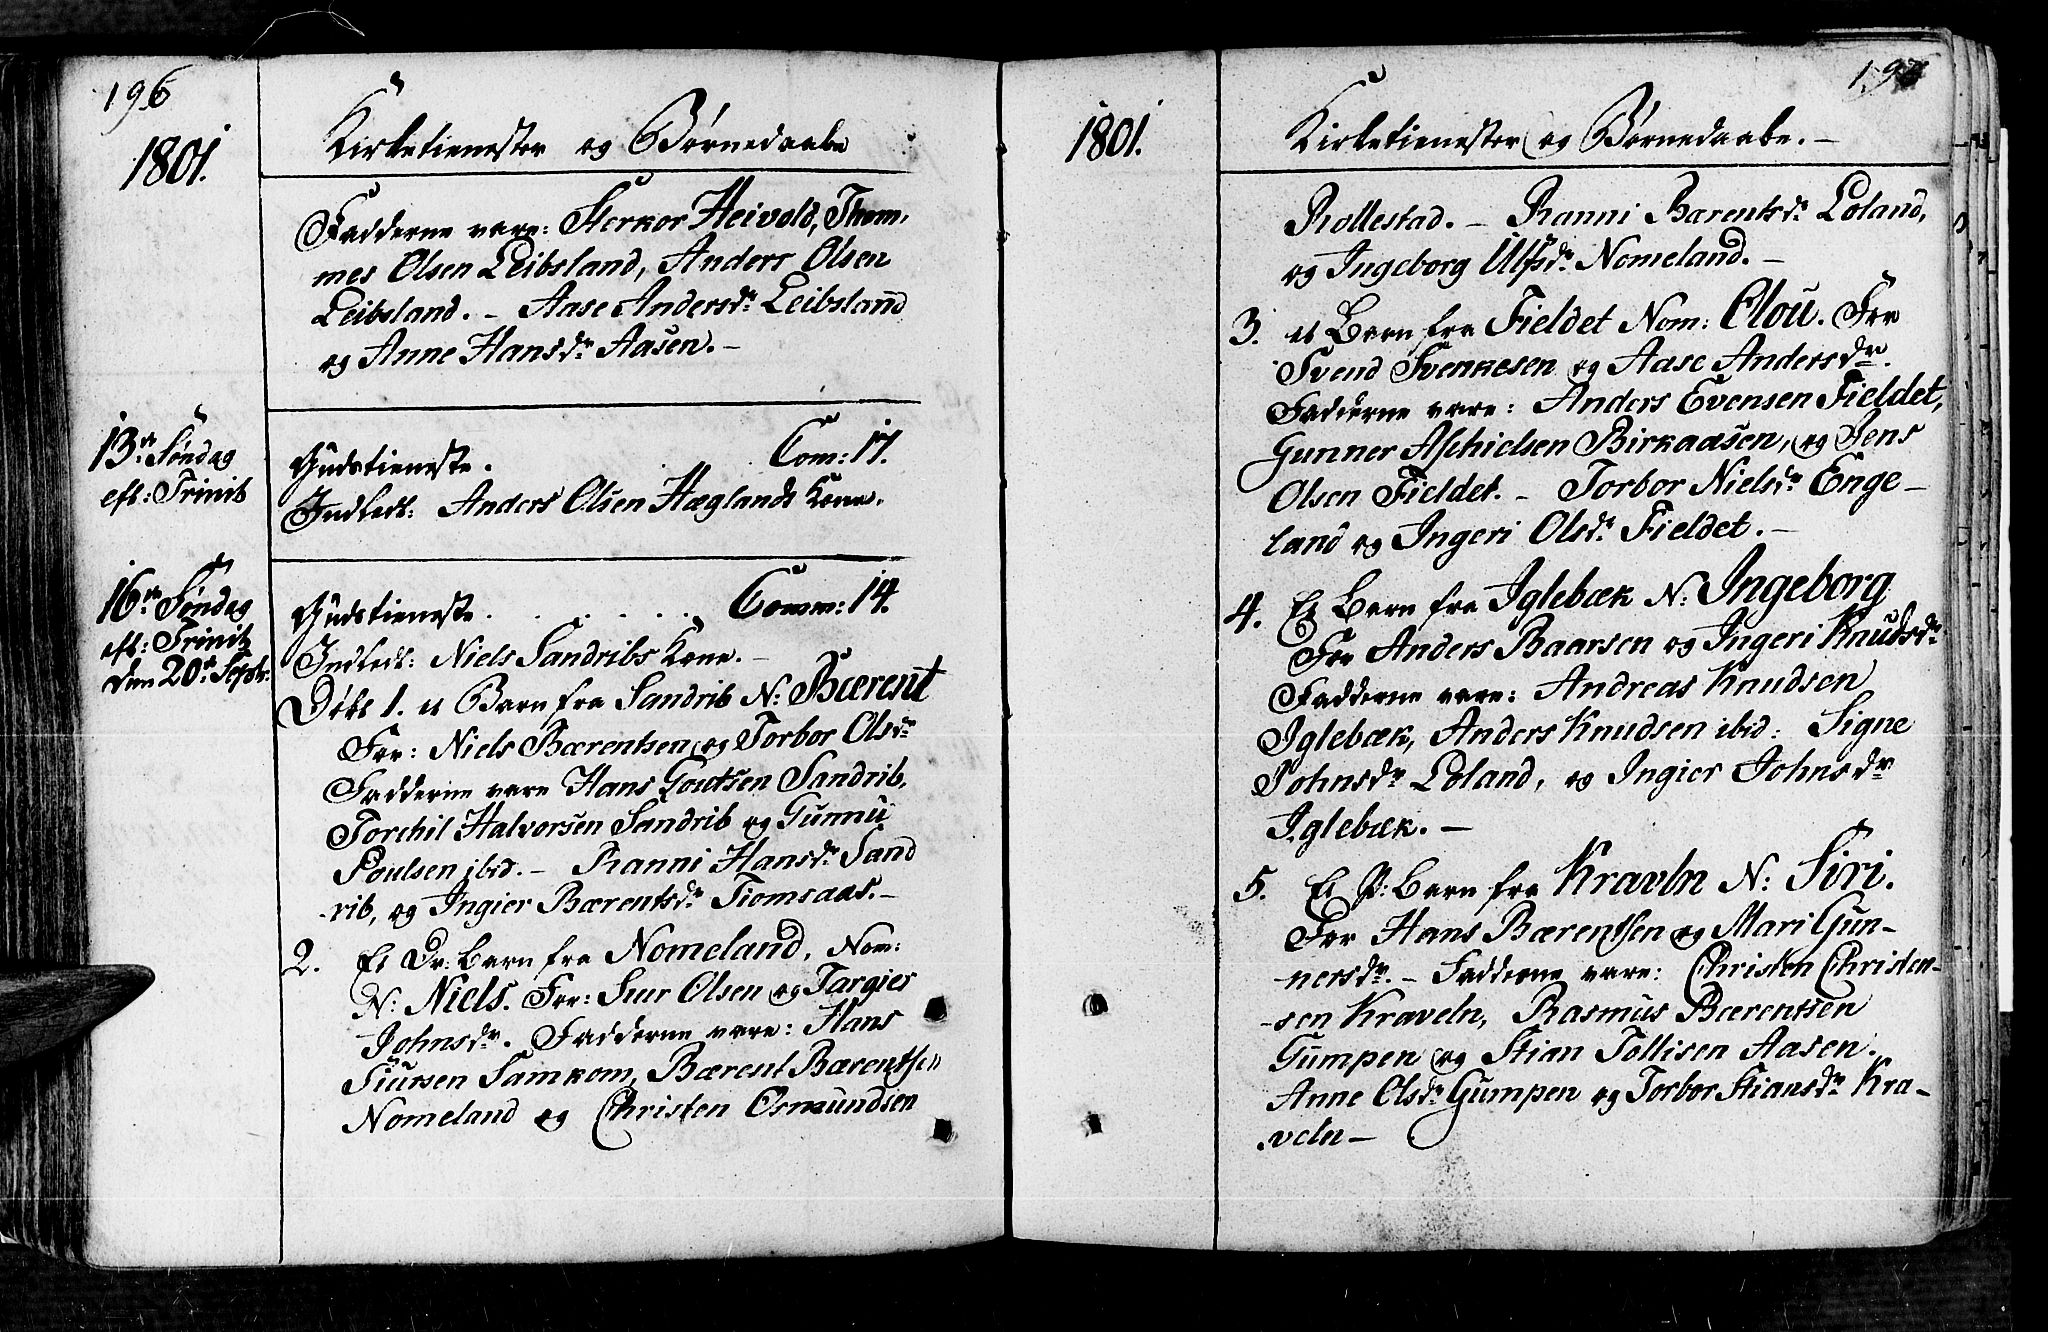 196
1801.
Kirketienester og Børnedaabe
Fadderne vare: Sterkor Heivold, Thom-
mes Olsen Leibsland, Anders Olsen
Leibsland. - Aase Andersdr. Leibsland
og Anne Hansdr. Aasen. -
13de Søndag
eft: Trinit
Gudstieneste. Com: 17.
Indledt: Anders Olsen Hæglands Kone.
16de Søndag
eft: Trinit
den 20de Septr.
Gudstieneste . . . . . Comm: 14.
Indledt: Niels Sandribs Kone. -
Døbt 1. et Barn fra Sandrib N: Bærent
For: Niels Bærentsen og Torbor Olsdr
Fadderne vare Hans Goutsen Sandrib,
Torchil Halvorsen Sandrib og Gunnu
Poulsen ibid. - Ranni Hansdr. Sand
-rib, og Ingier Bærentsdr. Tiomsaas. -
2. Et Dr: Barn fra Nomeland, Nom:
N: Niels. For: Siur Olsen og Targier
Johnsdr. Fadderne vare: Hans
Siursen Samkom, Bærent Bærentse=
Nomeland og Christen Osmundsen
1801.
Kirketienester og Børnedaabe. -
Rollestad. - Ranni Bærentsdr. Loland,
og Ingeborg Ulfsdr. Nomeland. -
3. et Barn fra Fieldet Nom: Olou. For
Svend Svenkesen og Aase Andersdr.
Fadderne vare: Anders Evensen Fieldet,
Gunner Aschielsen Birkaasen, og Jens
Olsen Fieldet. - Torbor Nielsdr. Enge-
land og Ingeri Olsdr. Fieldet. -
4. Et Barn fra Iglebæk N: Ingeborg
For Anders Baarsen og Ingeri Knudsdr
Fadderne vare: Andreas Knudsen
Iglebæk, Anders Knudsen ibid: Signe
Johnsdr. Loland, og Ingier Johnsdr
Iglebæk. -
5. Et P: Barn fra Kraveln N: Siri.
For Hans Bærentsen og Mari Gun-
nersdr. - Fadderne vare: Christen Christen-
-sen Kraveln, Rasmus Bærentsen
Gumpen og Stian Tollisen Aasen.
Anne Olsdr. Gumpen og Torbor Stiansdr. Kra-
veln -